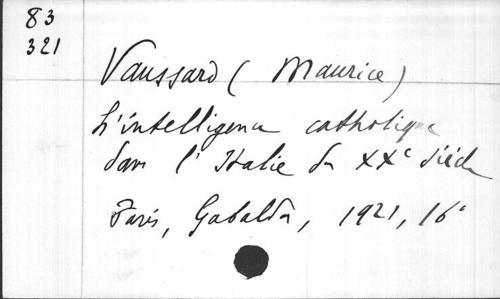 83
321
Vaussard (Maurice)
L'intelligence catholique
dans l'Italie du XXe siècle
Paris, Gabalda, 1921, 16°